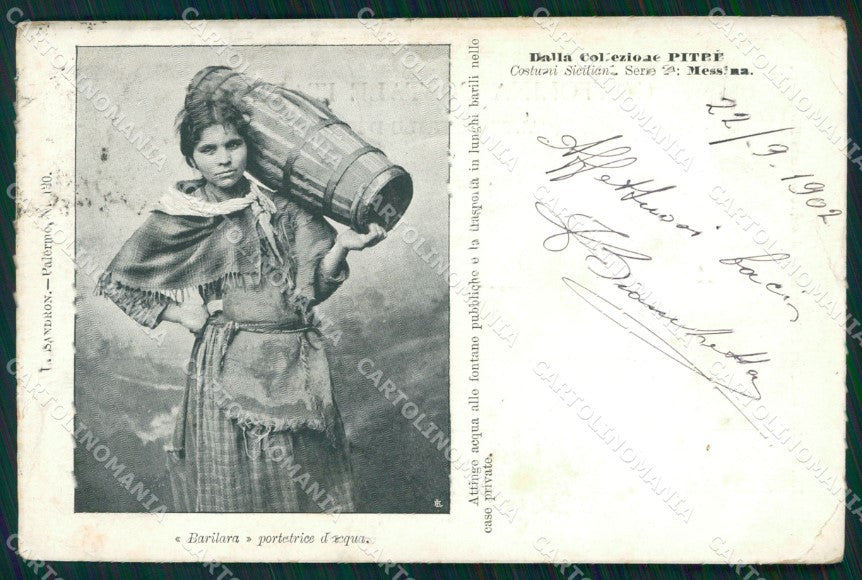 Dalla Collezione PITRÈ
Costumi Siciliani. Serie 2ª: Messina.
22/9.1902
Affettuosi baci
L. SANDRON.—Palermo, N. 120.
Attinge acqua alle fontane pubbliche e la trasporta in lunghi barili nelle
case private.
« Barilara » portatrice d'acqua.
CARTOLINOMANIA